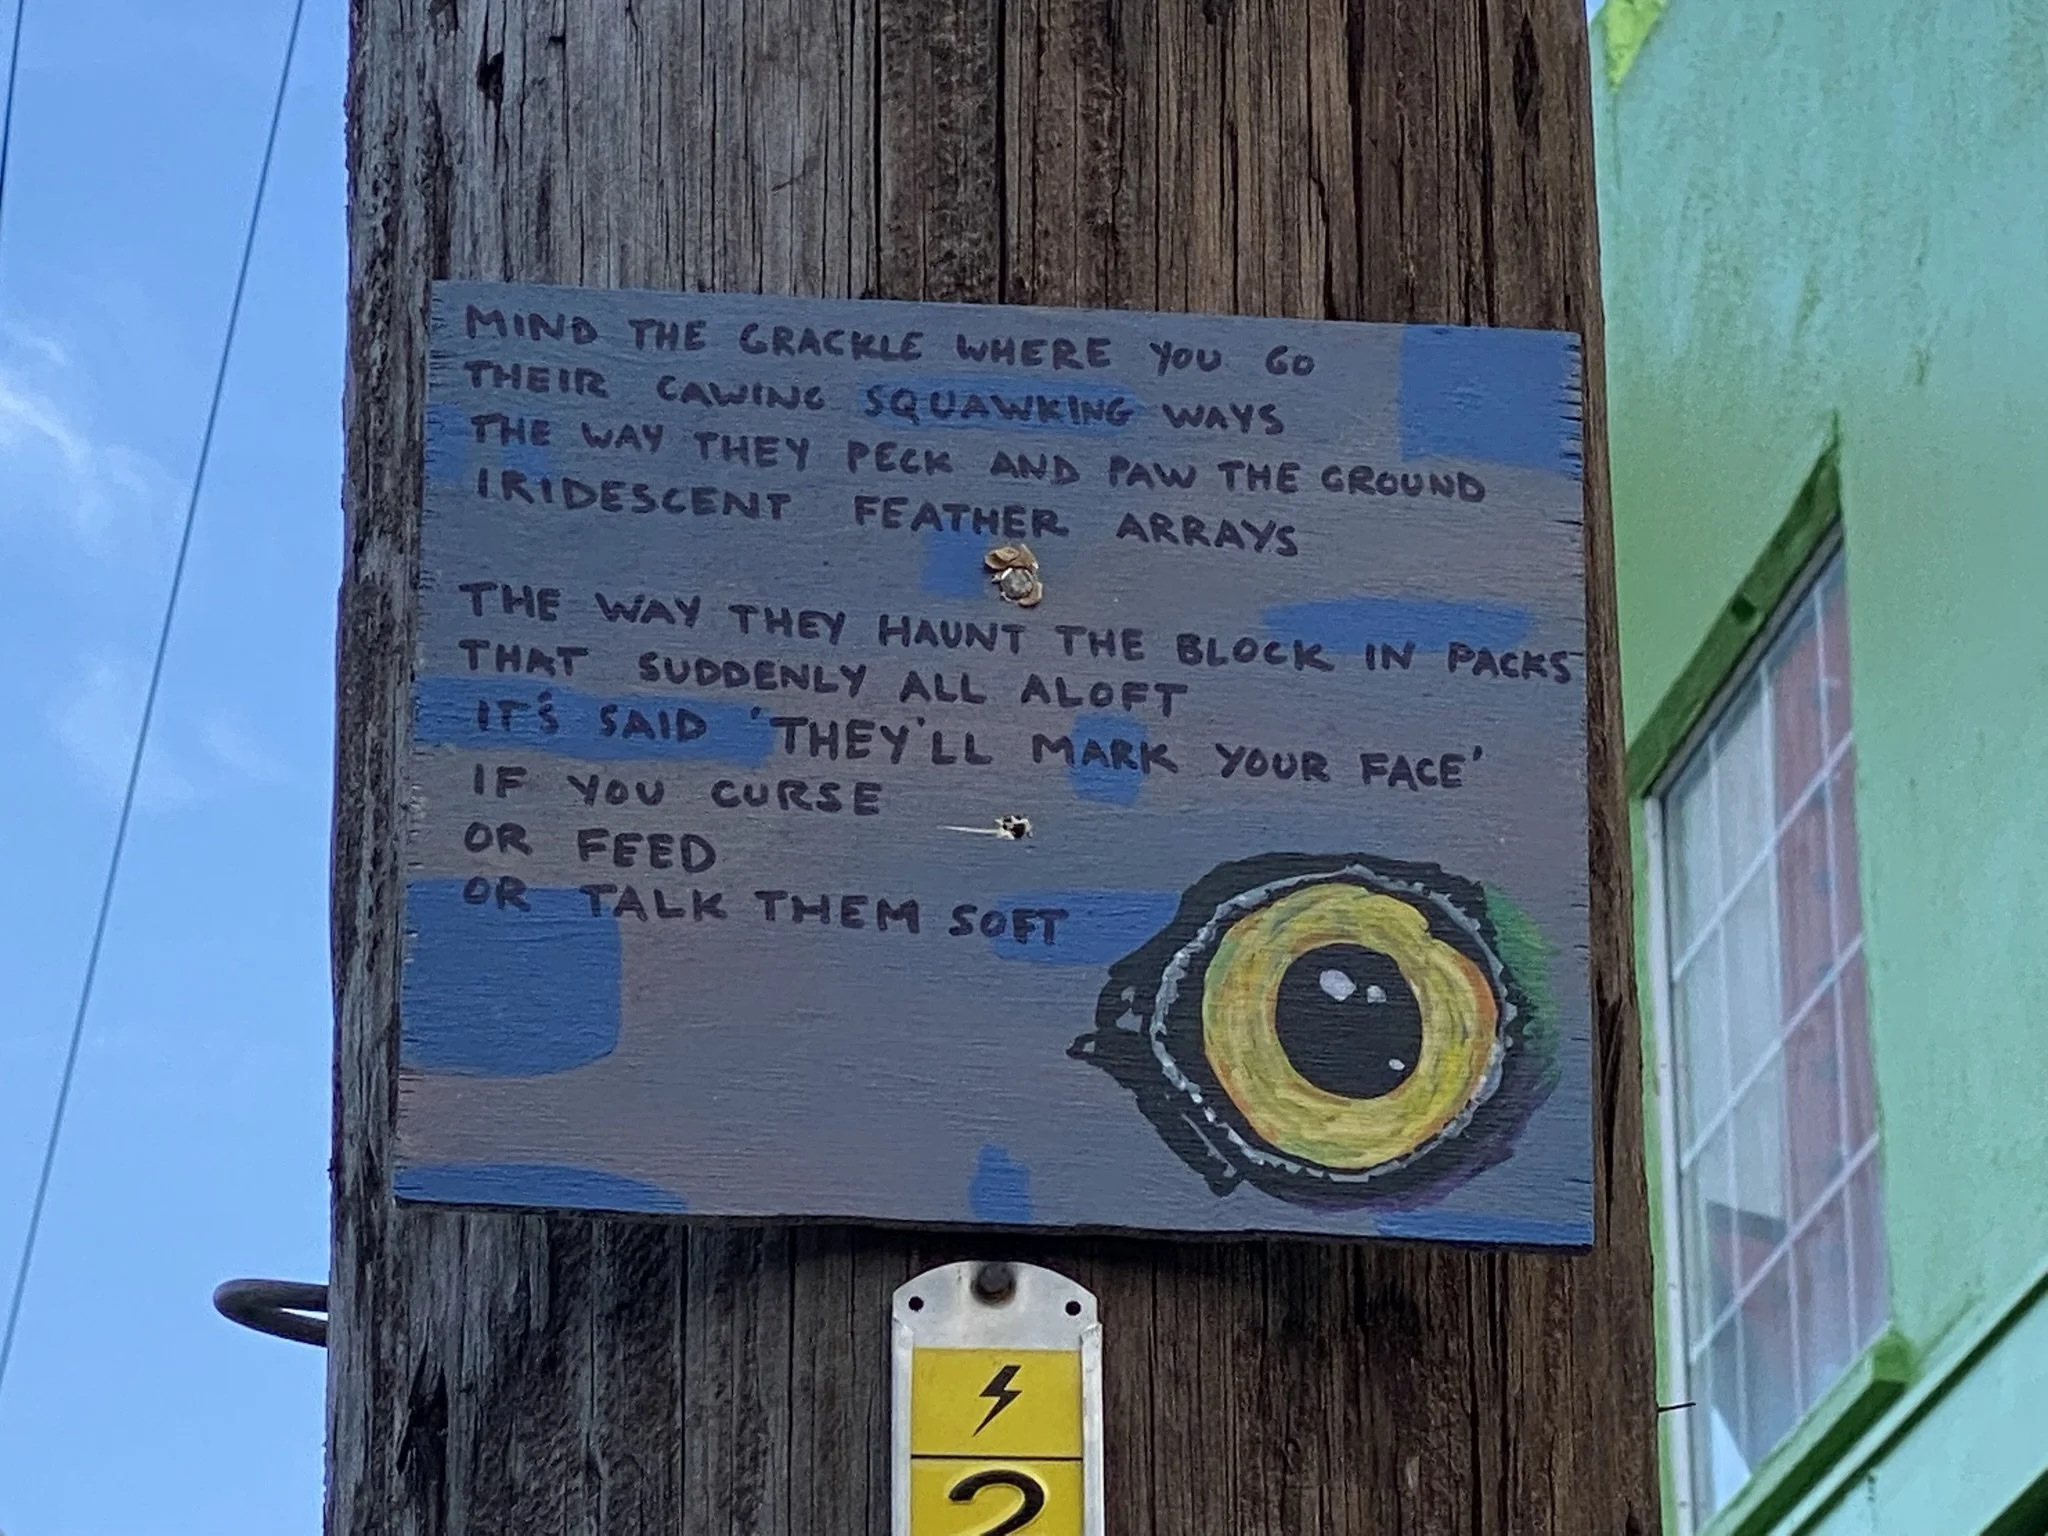 MIND THE GRACKLE WHERE YOU GO
THEIR CAWING SQUAWKING WAYS
THE WAY THEY PECK AND PAW THE GROUND
IRIDESCENT FEATHER ARRAYS
THE WAY THEY HAUNT THE BLOCK IN PACKS
THAT SUDDENLY ALL ALOFT
IT'S SAID 'THEY'LL MARK YOUR FACE'
IF YOU CURSE
OR FEED
OR TALK THEM SOFT
2